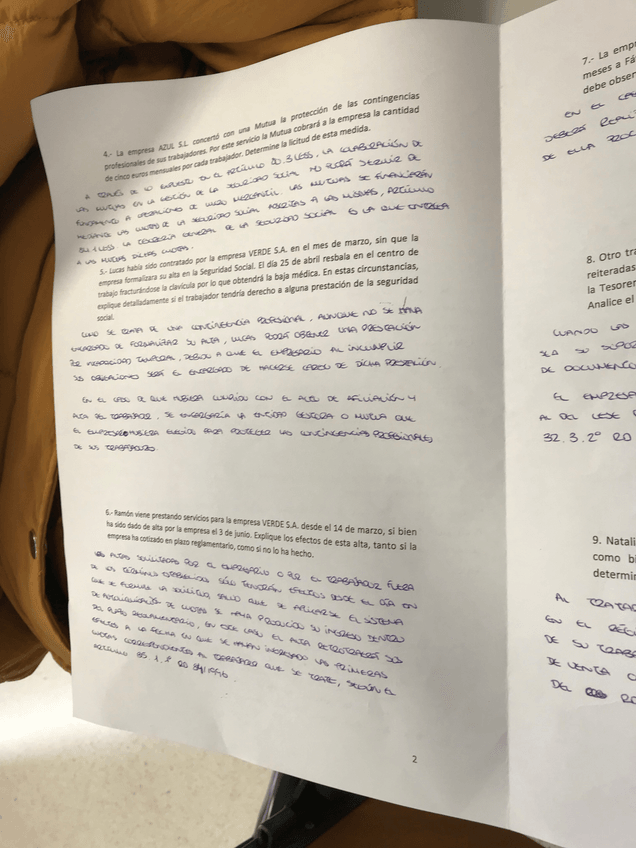 4.- La empresa AZUL S.L. concertó con una Mutua la protección de las contingencias
profesionales de sus trabajadores. Por este servicio la Mutua cobrará a la empresa la cantidad
de cinco euros mensuales por cada trabajador. Determine la licitud de esta medida.
A TRAVÉS DE LO EXPUESTO EN EL ARTÍCULO 80.3 LGSS, LA COLABORACIÓN DE
LAS MUTUAS EN LA GESTIÓN DE LA SEGURIDAD SOCIAL NO PODRÁ SERVIR DE
FUNDAMENTO A OPERACIONES DE LUCRO MERCANTIL. LAS MUTUAS SE FINANCIARÁN
MEDIANTE LAS CUOTAS DE LA SEGURIDAD SOCIAL ADSCRITAS A LAS MISMAS, ARTÍCULO
LGSS LA TESORERÍA GENERAL DE LA SEGURIDAD SOCIAL ES LA QUE ENTREGA
A LAS MUTUAS DICHAS CUOTAS.
5.- Lucas había sido contratado por la empresa VERDE S.A. en el mes de marzo, sin que la
empresa formalizara su alta en la Seguridad Social. El día 25 de abril resbala en el centro de
trabajo fracturándose la clavícula por lo que obtendrá la baja médica. En estas circunstancias,
explique detalladamente si el trabajador tendría derecho a alguna prestación de la seguridad
social.
COMO SE TRATA DE UNA CONTINGENCIA PROFESIONAL, AUNQUE NO SE HAYA
ENCARGADO DE FORMALIZAR SU ALTA, LUCAS PODRÁ OBTENER UNA PRESTACIÓN
POR INCAPACIDAD TEMPORAL, DEBIDO A QUE EL EMPRESARIO AL INCUMPLIR
SUS OBLIGACIONES SERÁ EL ENCARGADO DE HACERSE CARGO DE DICHA PRESTACIÓN.
EN EL CASO DE QUE HUBIERA CUMPLIDO CON EL ACTO DE AFILIACIÓN Y
ALTA DEL TRABAJADOR, SE ENCARGARÍA LA ENTIDAD GESTORA O MUTUA QUE
EL EMPRESARIO HUBIERA ELEGIDO PARA PROTEGER LAS CONTINGENCIAS PROFESIONALES
DE SUS TRABAJADORES.
6.- Ramón viene prestando servicios para la empresa VERDE S.A. desde el 14 de marzo, si bien
ha sido dado de alta por la empresa el 3 de junio. Explique los efectos de esta alta, tanto si la
empresa ha cotizado en plazo reglamentario, como si no lo ha hecho.
LAS ALTAS SOLICITADAS POR EL EMPRESARIO O POR EL TRABAJADOR FUERA
DE LOS TÉRMINOS ESTABLECIDOS SÓLO TENDRÁN EFECTOS DESDE EL DÍA EN
QUE SE FORMULE LA SOLICITUD, SALVO QUE SE APLICARSE EL SISTEMA
DE AUTOLIQUIDACIÓN DE CUOTAS SE HAYA PRODUCIDO SU INGRESO DENTRO
DEL PLAZO REGLAMENTARIO, EN ESTE CASO EL ALTA RETROTRAERÁ SUS
EFECTOS A LA FECHA EN QUE SE HAYAN INGRESADO LAS PRIMERAS
CUOTAS CORRESPONDIENTES AL TRABAJADOR QUE SE TRATE, SEGÚN EL
ARTÍCULO 35.1.1º RD 84/1996.
2
7.- La emp
meses a Fá
debe obser
EN EL CAS
DEBERÁ REALI
DE ELLA PROC
8. Otro tra
reiteradas
la Tesorer
Analice el
CUANDO LAS
SEA SU SOPOR
DE DOCUMENTO
EL EMPRESA
AL DEL CESE
32.3.2º RD
9. Natali
como bi
determin
AL TRATAR
EN EL RÉG
DE SU TRABA
DE VENTA
DEL RD